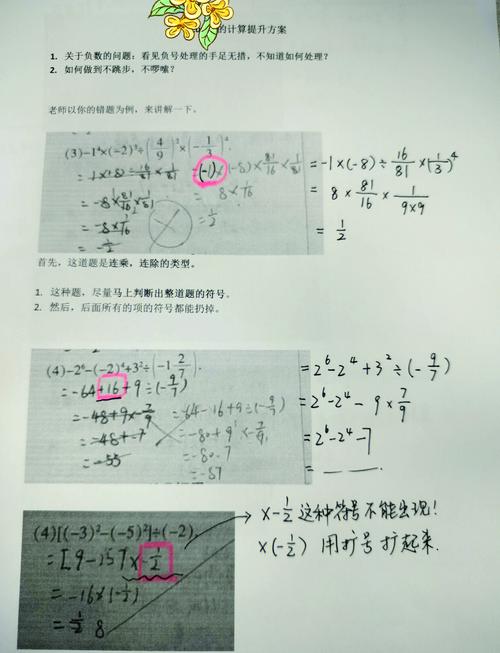 的计算提升方案
1. 关于负数的问题：看见负号处理的手足无措，不知道如何处理？
2. 如何做到不跳步，不啰嗦？
老师以你的错题为例，来讲解一下。
(3)-1⁴×(-2)³÷(4/9)²×(-1/3)⁴.
= 1×(8)÷16/81×(1/81)
= -8×81/16×1/81
= -8×1/16
= -1/2
(-1)×(-8)×81/16×1/81
8×1/16
= 1/2
= -1×(-8)÷16/81×(1/3)⁴
= 8×81/16×1/9×9
= 1/2
首先，这道题是连乘，连除的类型。
1. 这种题，尽量马上判断出整道题的符号。
2. 然后，后面所有的项的符号都能扔掉。
(4)-2⁶-(-2)⁴+3²÷(-1 2/7).
= -64+16+9÷(-9/7)
= -48+9×-7/9
= -48+-7
= -55
= -64-16+9÷(-9/7)
= -80+9×-7/9
= -80-7
= -87
= 2⁶-2⁴+3²÷(-9/7)
= 2⁶-2⁴-9×7/9
= 2⁶-2⁴-7
= ——.
(4)[(-3)²-(-5)²]÷(-2).
= [9-25]×-1/2
= -16×(-1/2)
= 8
×-1/2 这种符号不能出现！
×(-1/2) 用扩号扩起来.